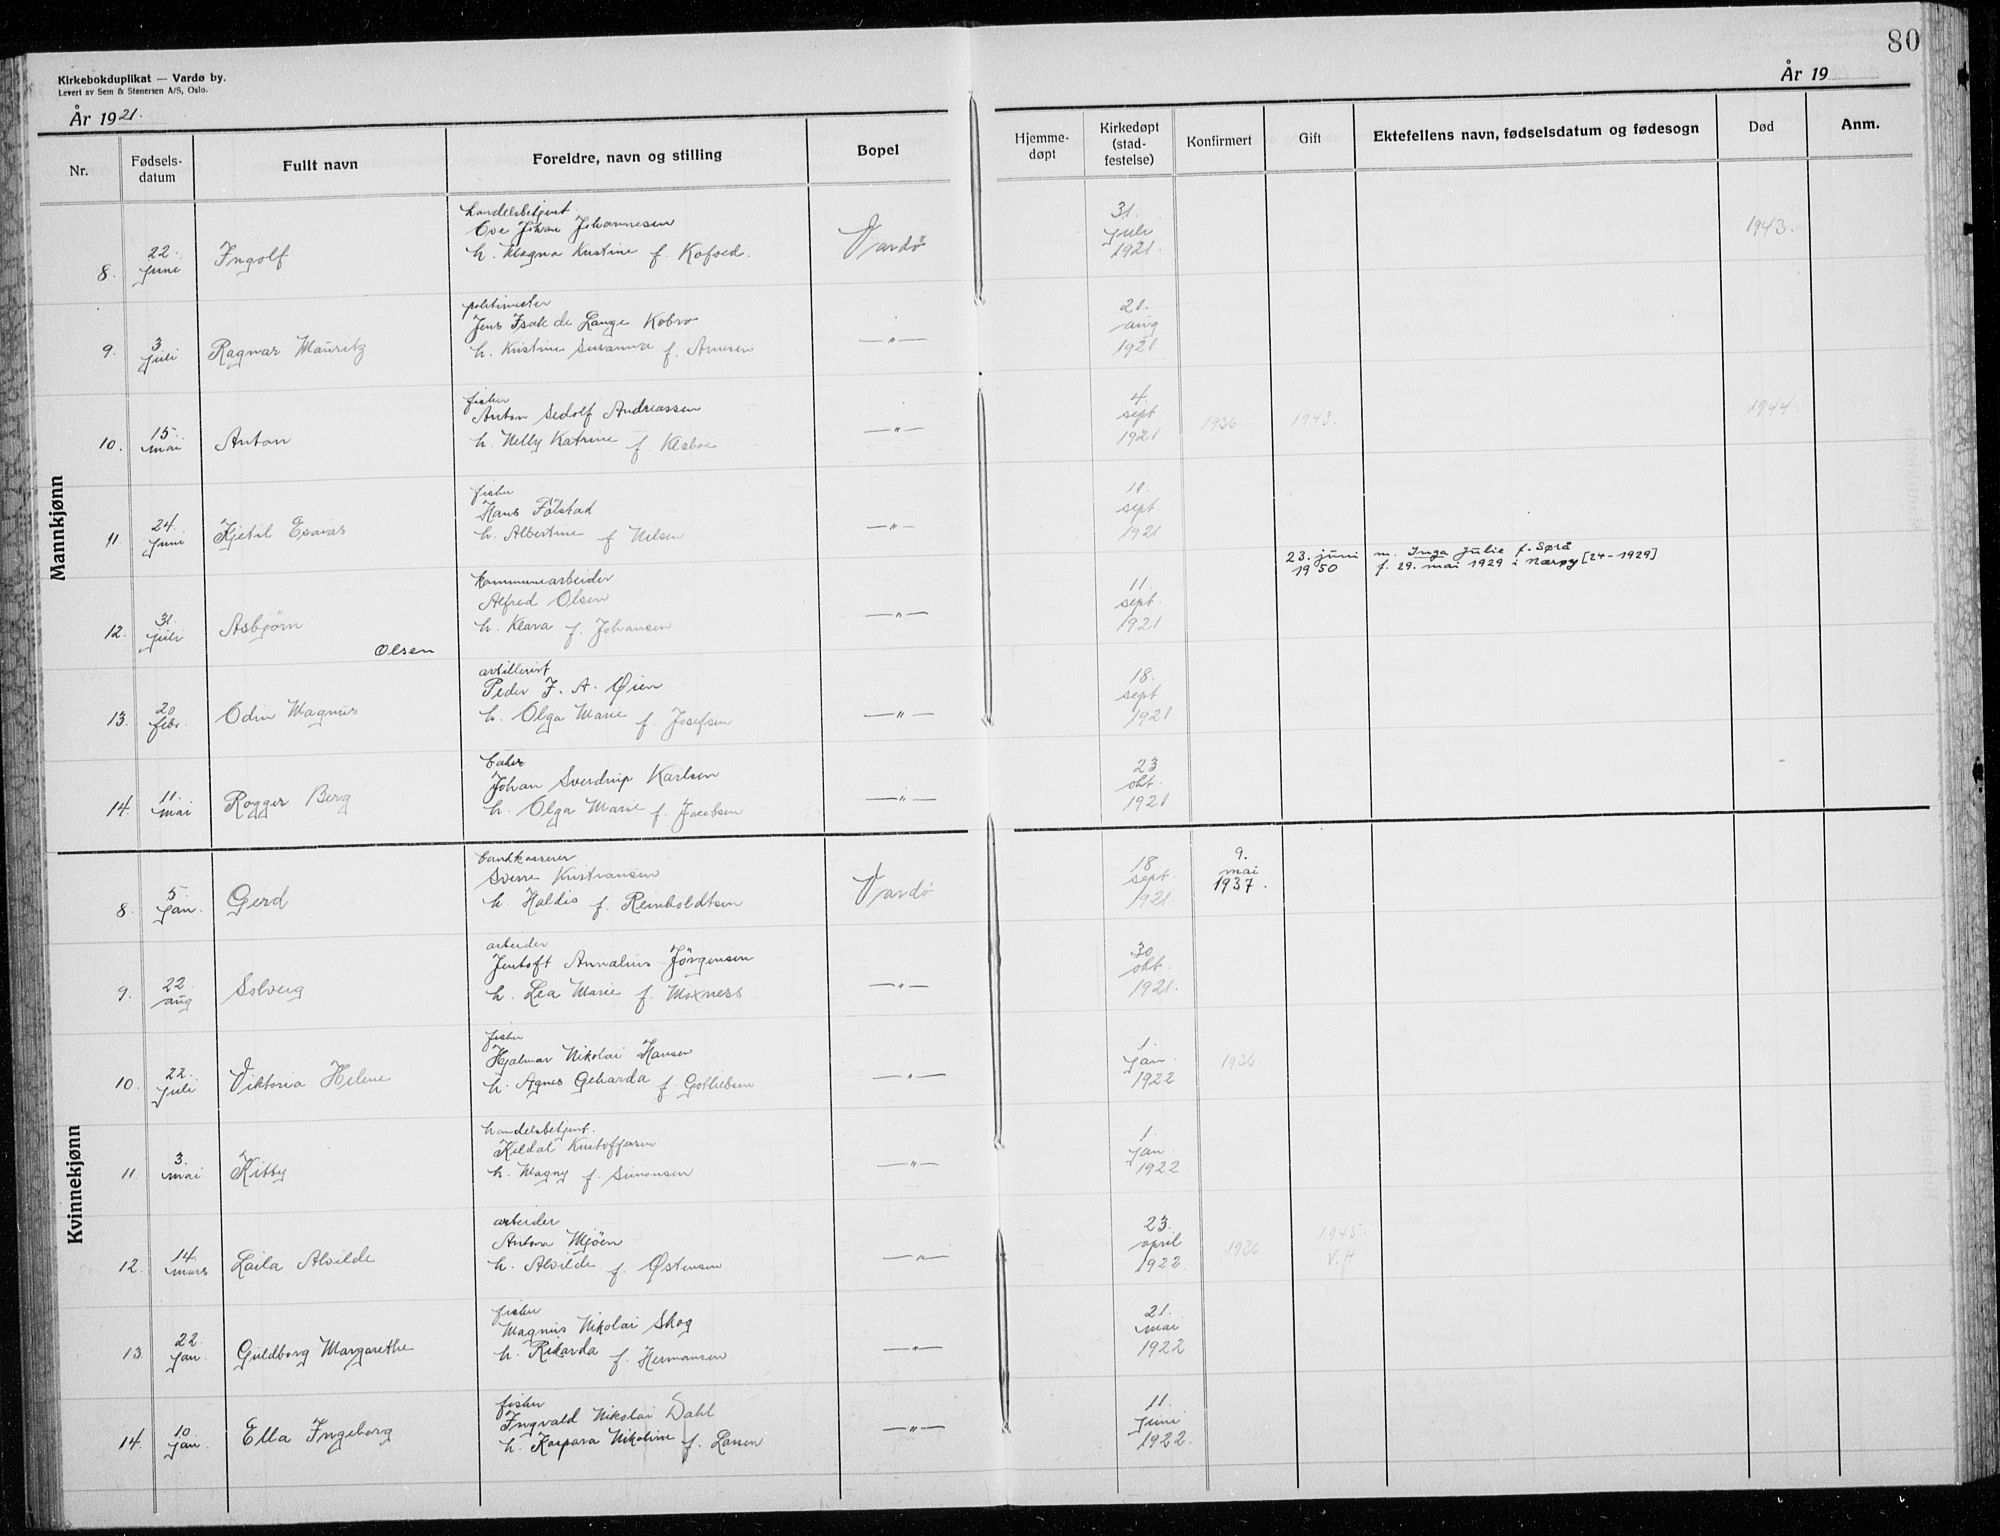 80
Kirkebokduplikat — Vardø by.
Levert av Sem & Stenersen A/S, Oslo.
År 1921.
År 19
Nr.
Fødsels-
datum
Fullt navn
Foreldre, navn og stilling
Bopel
Hjemme-
døpt
Kirkedøpt
(stad-
festelse)
Konfirmert
Gift
Ektefellens navn, fødselsdatum og fødesogn
Død
Anm.
Mannkjønn
8. 22. juni Ingolf
handelsbetjent
Ove Johan Johannesen
h. Magna Kristine f. Kofoed.
Vardø
31. juli 1921.
1943.
9. 3 juli Ragnar Mauritz
politimester
Jens Isak de Lange Kobro
h. Kristine Susanna f. Arnesen
— " —
21. aug 1921
10. 15. mai Anton
fisker
Anton Sedolf Andreassen
h. Nelly Katrine f. Klaboe
— " —
4. sept 1921
1936
1943.
1944.
11. 24. juni Kjetil Esaias
fisker
Hans Fölstad
h. Albertine f Nilsen
— " —
11. sept. 1921
12. 31. juli Asbjörn
Olsen
kommunearbeider
Alfred Olsen
h. Klara f. Johansen
— " —
11. sept. 1921
23. juni
1950
m. Inga Julie f. Sørå
f. 29. mai 1929 i Nærøy [24-1929]
13. 20 febr. Odin Magnus
artillerist
Peder J. A. Øien
h. Olga Marie f. Josefsen
— " —
18. sept. 1921
14. 11. mai Rogger Berg
baker
Johan Sverdrup Karlsen
h. Olga Marie f. Jacobsen
— " —
23 okt. 1921
Kvinnekjønn
8. 5. jan. Gerd
bankkasserer
Sverre Kristiansen
h. Haldis f. Reinholdtsen
Vardø
18 sept. 1921
9. mai 1937.
9. 22. aug Solveig
arbeider
Jentoft Annalius Jörgensen
h. Lea Marie f. Moxness
— " —
30 okt. 1921.
10. 22. juli Viktoria Helene
fisker
Hjalmar Nikolai Hansen
h. Agnes Geharda f. Gotliebsen
— " —
1. jan. 1922
1936
11. 3. mai Kitty
handelsbetjent.
Kildal Kristoffersen
h. Magny f. Simonsen
— " —
1. jan 1922
12. 14. mars Laila Alvilde
arbeider
Anton Mjöen
h. Alvilde f. Østensen
— " —
23. april 1922
1936
1945.
V.H
13 22. jan. Guldborg Margarethe
fisker
Magnus Nikolai Skog
h. Rikarda f. Hermansen
— " —
21. mai 1922
14. 10. jan. Ella Ingeborg
fisker
Ingvald Nikolai Dahl
h. Kaspara Nikoline f. Larsen
— " —
11. juni 1922.